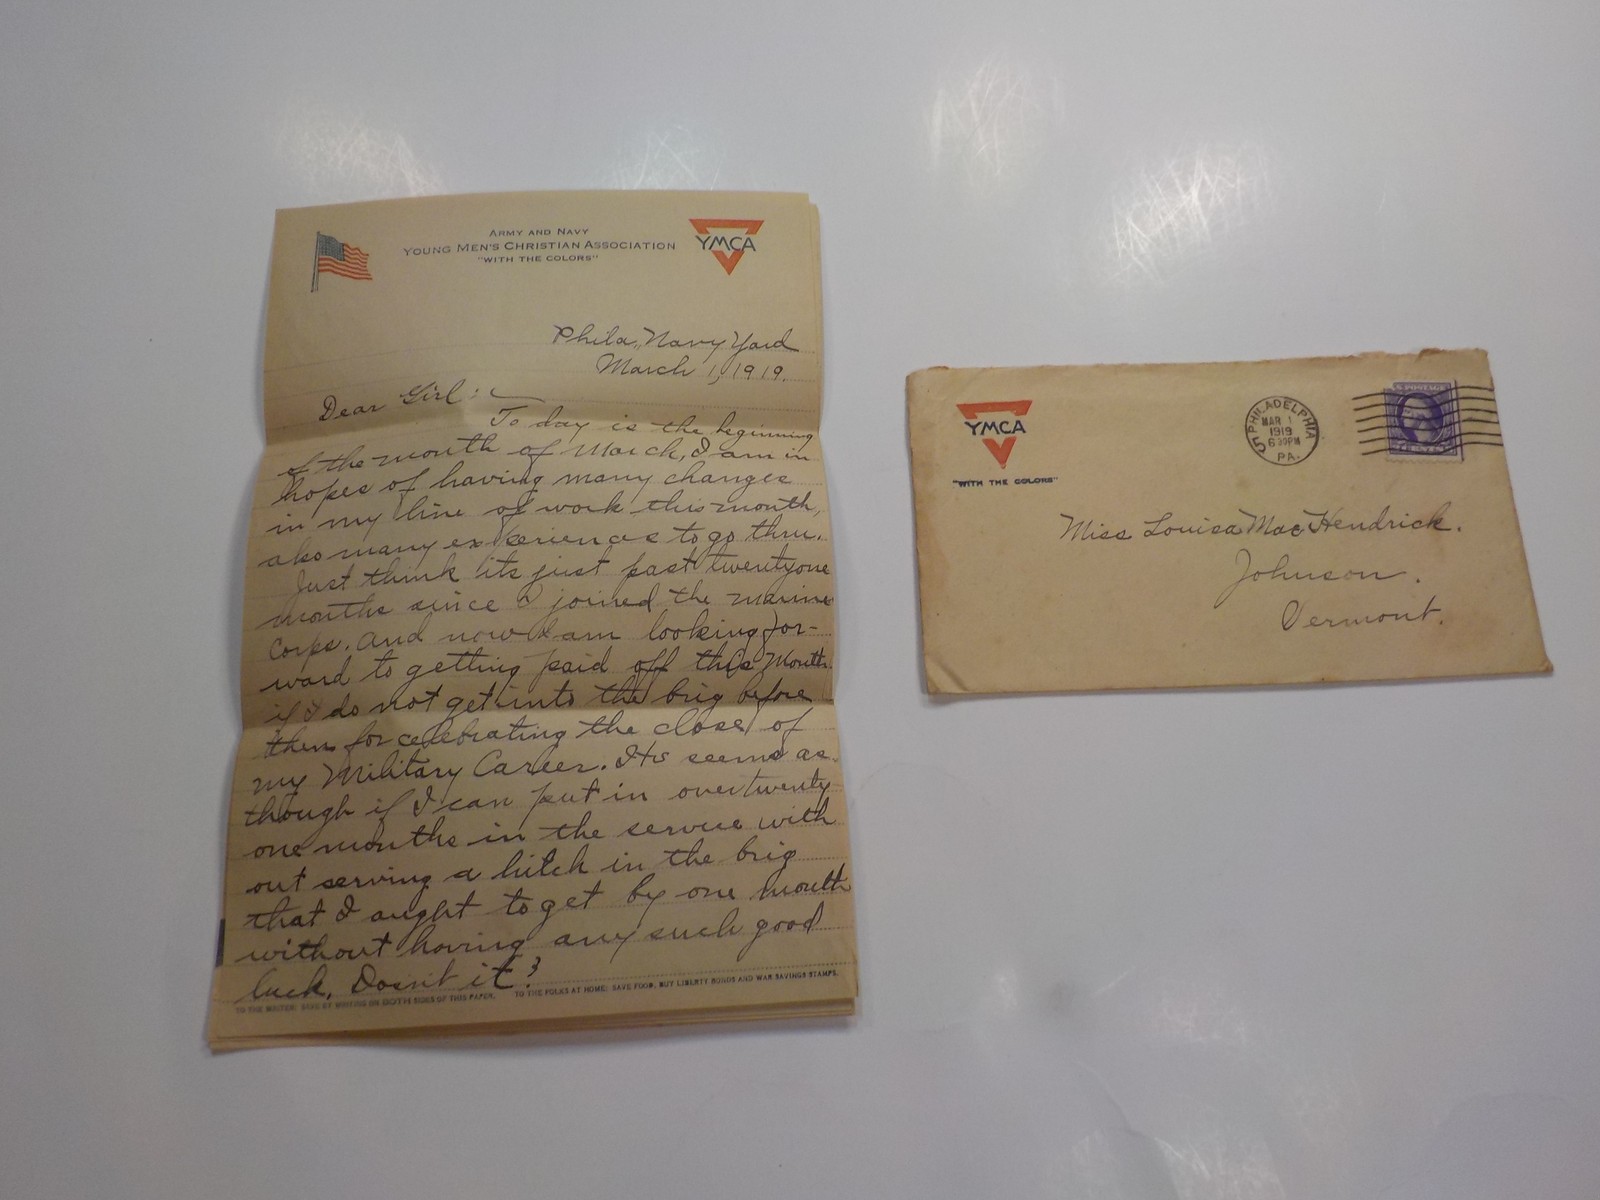 ARMY AND NAVY
YOUNG MEN'S CHRISTIAN ASSOCIATION
"WITH THE COLORS"
YMCA
Phila, Navy Yard
March 1, 1919.
Dear Girl:
To day is the beginning
of the month of March, I am in
hopes of having many changes
in my line of work this month,
also many experiences to go thru.
Just think its just past twentyone
months since I joined the marine
Corps. And now I am looking for-
ward to getting paid off this Month.
if I do not get into the brig before
then for celebrating the close of
my Military Career. Its seems as
though if I can put in over twenty
one months in the service with
out serving a hitch in the brig
that I aught to get by one month
without having any such good
luck, Doesnt it?
TO THE WRITER: SAVE BY WRITING ON BOTH SIDES OF THIS PAPER. TO THE FOLKS AT HOME: SAVE FOOD, BUY LIBERTY BONDS AND WAR SAVINGS STAMPS.
YMCA
"WITH THE COLORS"
PHILADELPHIA
MAR 1
1919
6 30PM
PA.
U.S. POSTAGE
Miss Louisa MacHendrick.
Johnson.
Vermont.